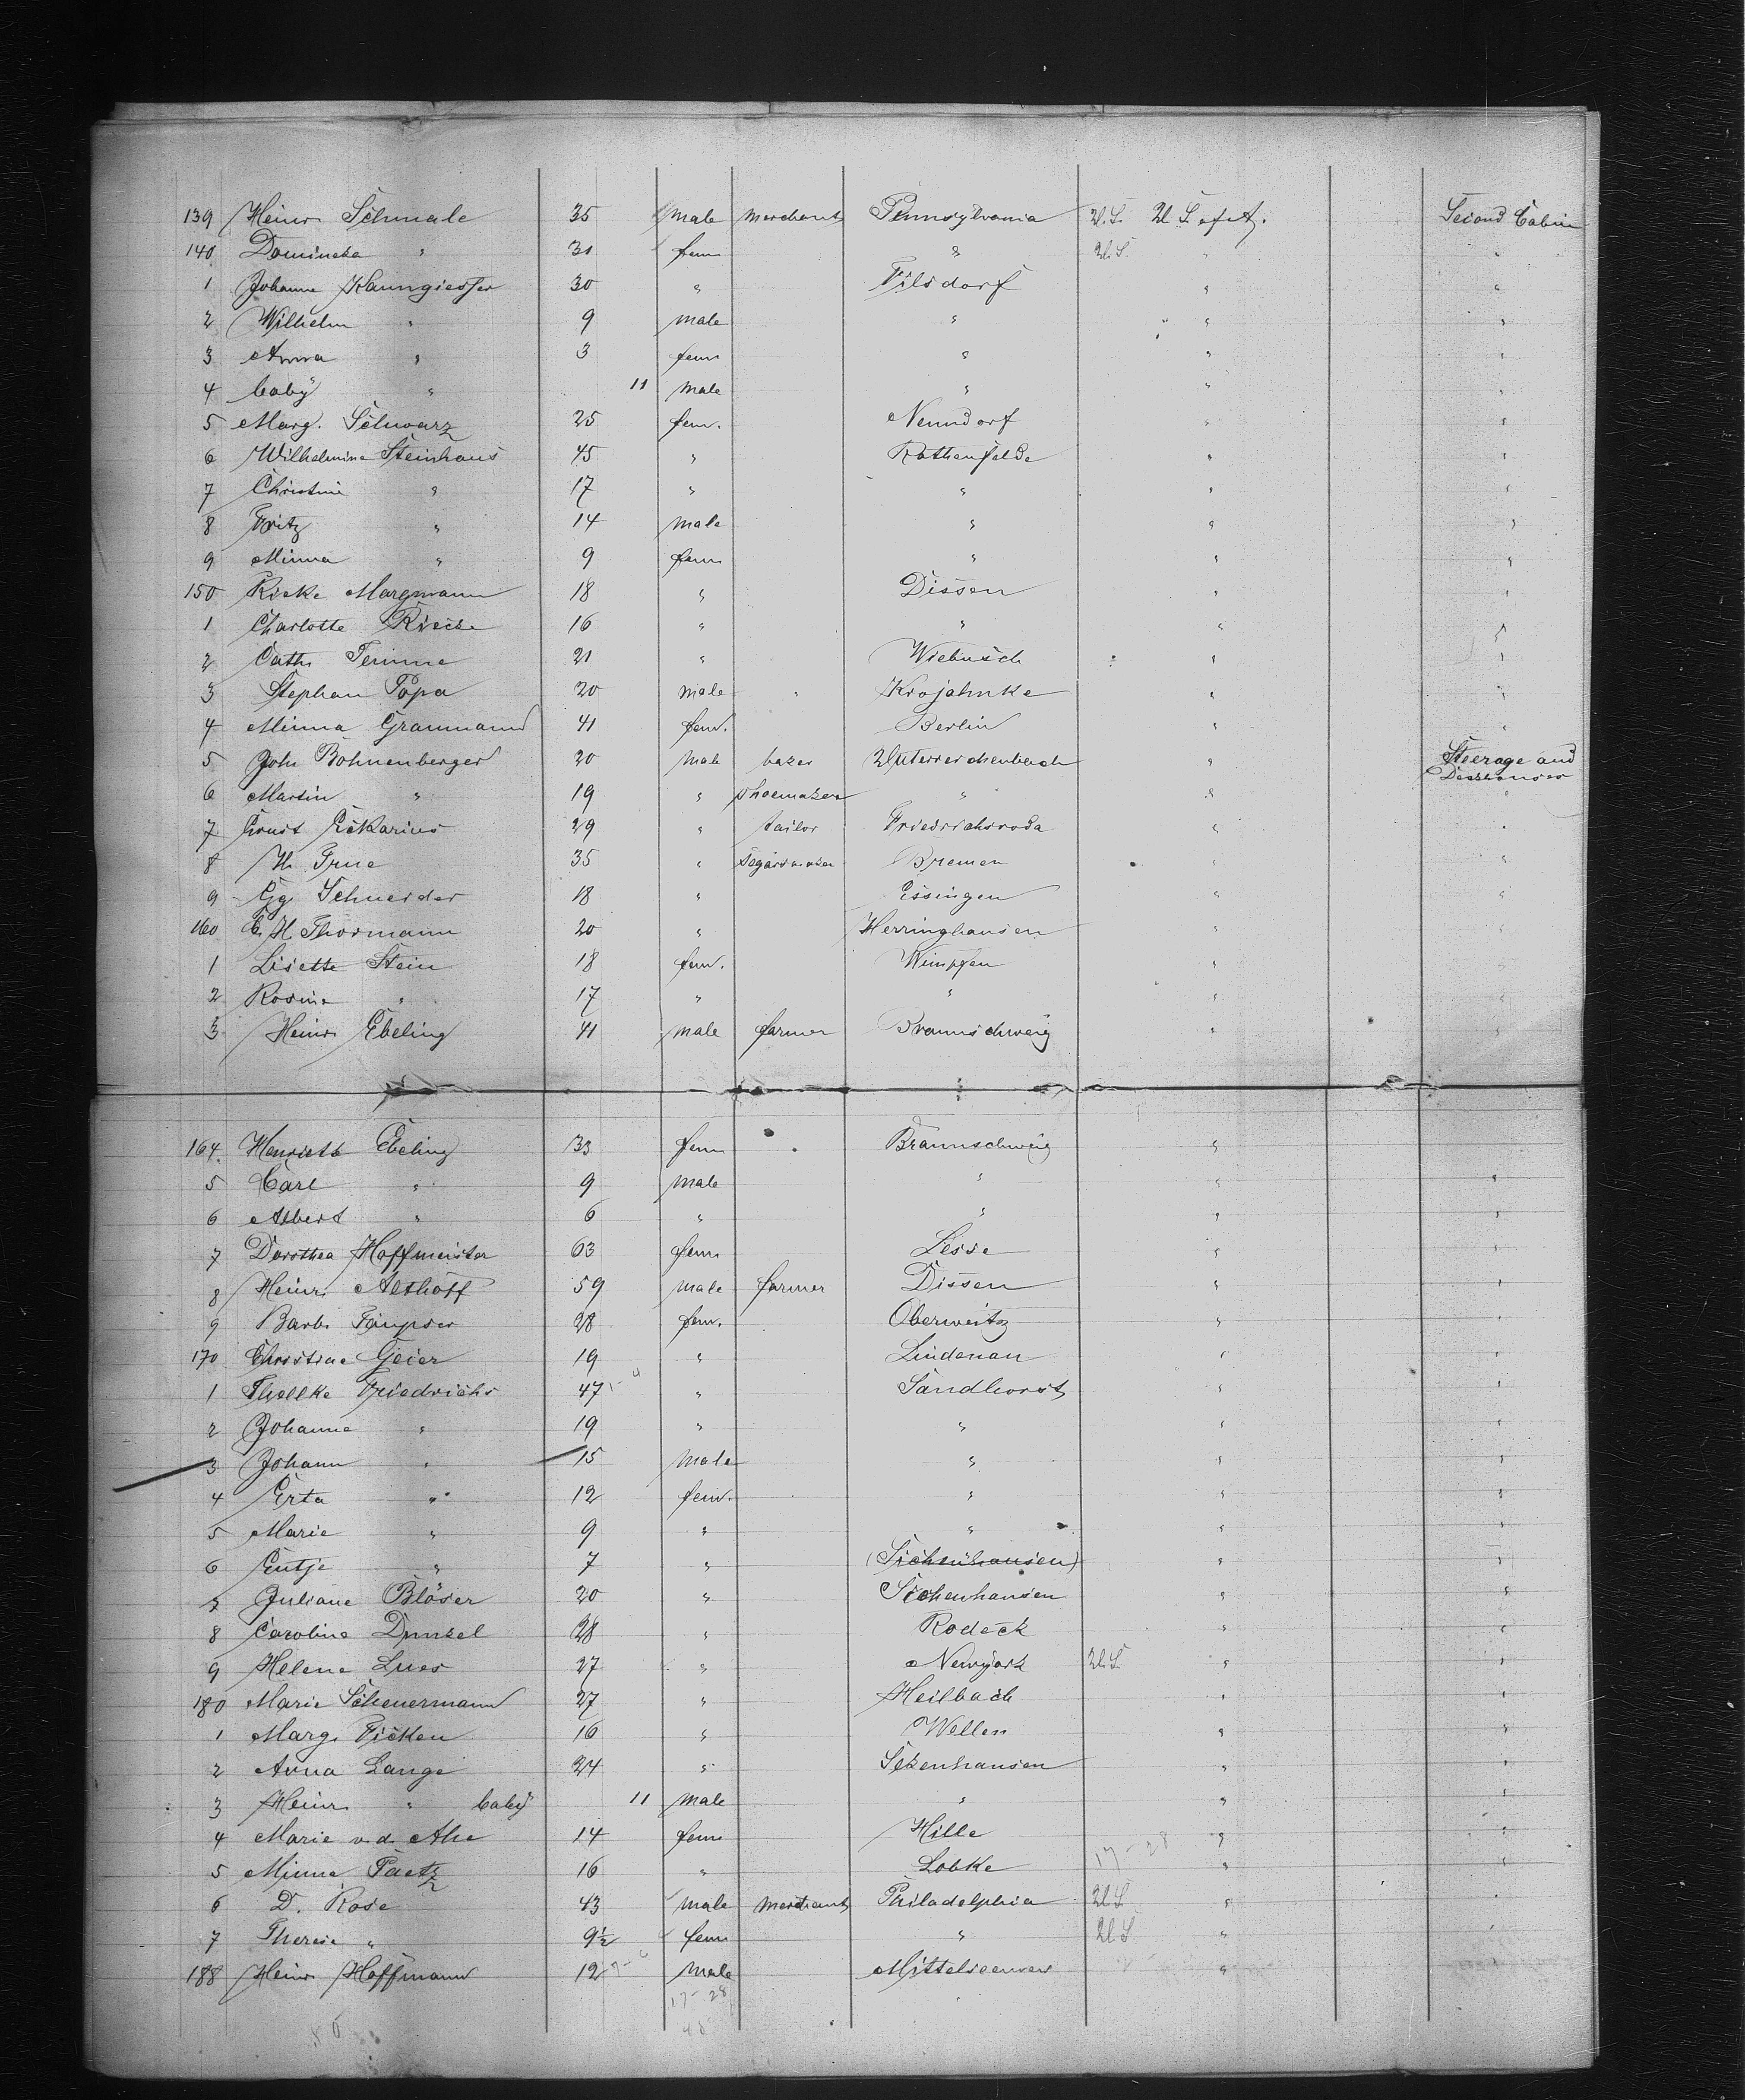 139 Heinr. Schmale 35 male merchant Pennsylvania U.S. U.S. of A. Second Cabin
140 Domineka " 31 fem " U.S. " "
1 Johanne Kanngiesser 30 " Filsdorf " "
2 Wilhelm " 9 male " " "
3 Anna " 3 fem " " "
4 baby " 11 male " " "
5 Marg. Schwarz 25 fem. Nenndorf " "
6 Wilhelmine Steinhaus 45 " Rothenfelde " "
7 Christine " 17 " " " "
8 Fritz " 14 male " " "
9 Minna " 9 fem " " "
150 Rieke Margmann 18 " Dissen " "
1 Charlotte 16 " " " "
2 Cath. Temme 21 " Wiebusch " "
3 Stephan Popa 20 male " Krojahnke " "
4 Minna Grammann 41 fem. Berlin " "
5 Joh. Bohnenberger 20 male baker Unterreichenbach " Steerage and Deckhouses
6 Martin " 19 " shoemaker " " "
7 Ernst Eckarius 29 " tailor Friedrichroda " "
8 H. True 35 " Segarsmaker Bremen " "
9 Gg. Schneider 18 " Essingen " "
160 C. H. Thormann 20 " Herringhausen " "
1 Lisette Stein 18 fem. Wimpfen " "
2 Rosine " 17 " " " "
3 Heinr. Ebeling 41 male farmer Braunschweig " "
164. Henriette Ebeling 33 fem Braunschweig "
5 Carl " 9 male " " "
6 Albert " 6 " " " "
7 Dorothea Hoffmeister 63 fem Lesse " "
8 Heinr. Althoff 59 male farmer Dissen " "
9 Barb. 28 fem. Oberweitz " "
170 Christine Geier 19 " Lindenau " "
1 Thellke Friedrichs 47 " Sandhorst " "
2 Johanne " 19 " " " "
3 Johann " 15 male " " "
4 Erta " 12 fem. " " "
5 Marie " 9 " " " "
6 Entje " 7 " (Sichenhausen) " "
7 Juliane Bläser 20 " Sichenhausen " "
8 Caroline Dunkel 28 " Rodeck " "
9 Helene Lues 27 " Newyork U.S. " "
180 Marie Scheuermann 27 " Heilbach " "
1 Marg. Ficken 16 " Wellen " "
2 Anna Lange 24 " Sekenhausen " "
3 Heinr. " baby 11 male " " "
4 Marie v.d. Ahe 14 fem Hille " "
5 Minna Paetz 16 " Lobke 17-28 " "
6 D. Rose 43 male merchant Philadelphia U.S " "
7 Therese " 9½ fem " U.S " "
188 Heinr. Hoffmann 12 male "
17-28